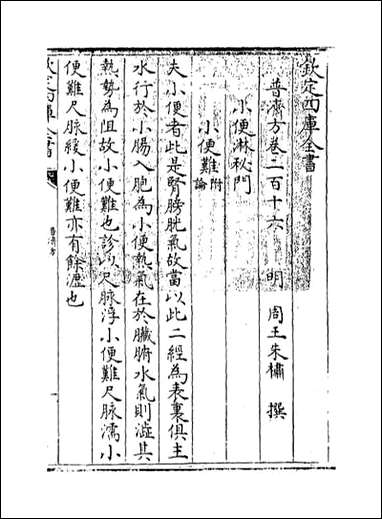 欽定四庫全書
普濟方卷二百十六 明 周王朱橚 撰
小便淋秘門
小便難 附論
夫小便者此是腎膀胱氣故當以此二經為表裏俱主
水行於小腸入胞為小便熱氣在於臟腑水氣則澁其
熱勢為阻故小便難也診以尺脉浮小便難尺脉濡小
便難尺脉緩小便難亦有餘瀝也
普濟方